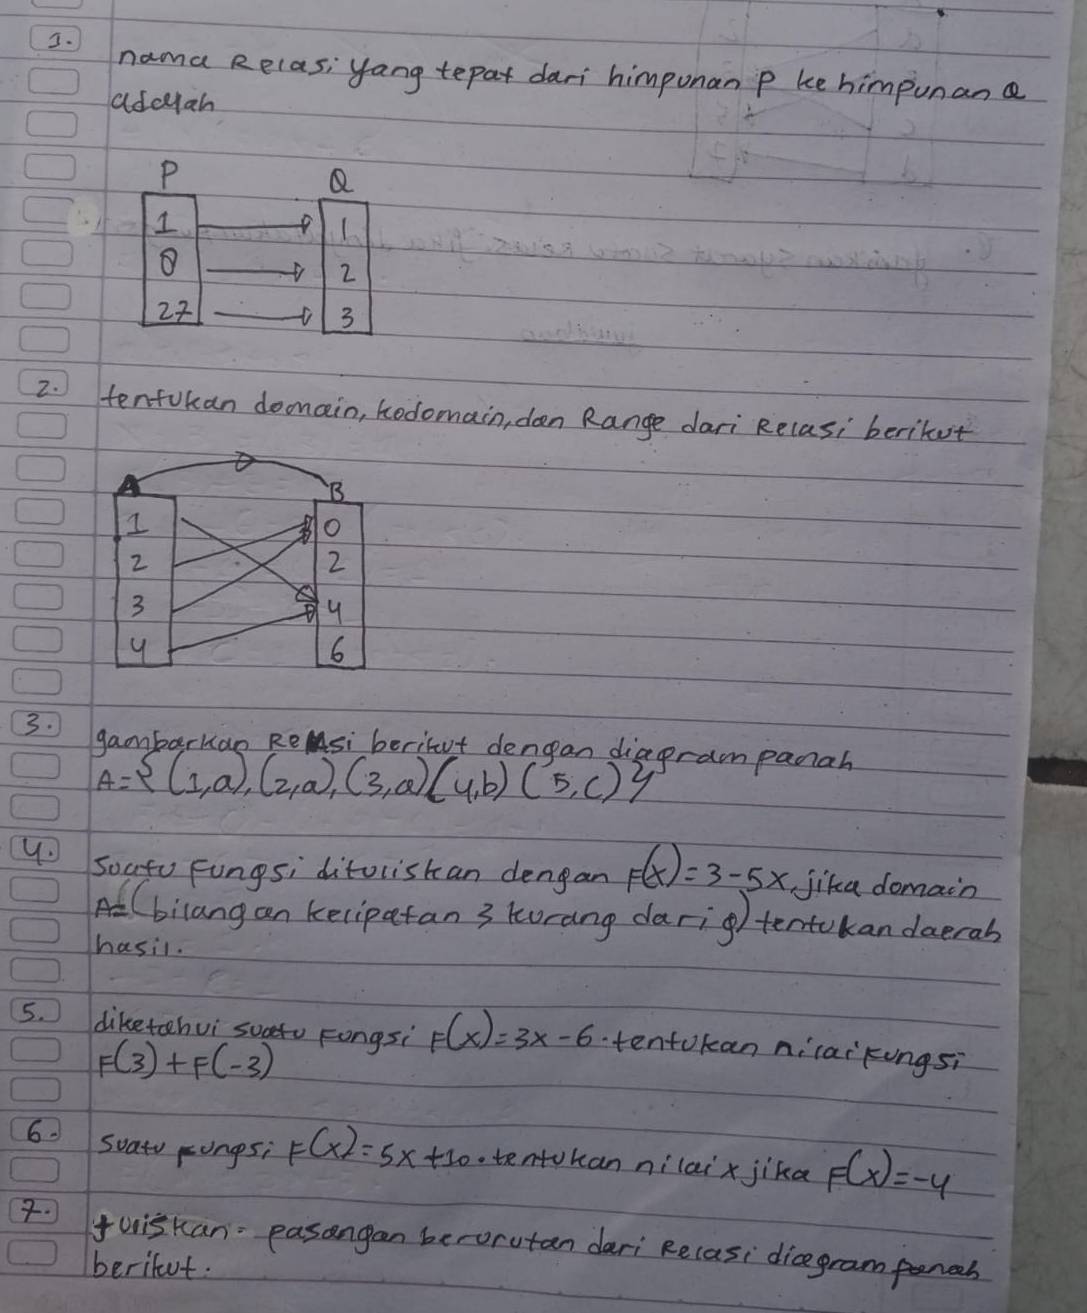 1.
nama Relasi yang tepat dari himpunan P ke himpunan Q
adalah
P Q
1 1
8 2
27 3
2. tentukan domain, kodomain, dan Range dari Relasi berikut
A B
1 0
2 2
3 4
4 6
3. gambarkan Relasi berikut dengan diagram panah
A = { (1,a), (2,a), (3,a) (4,b) (5,c) }
4. Suatu Fungsi dituliskan dengan F(x) = 3 - 5x, jika domain
A = (bilangan kelipatan 3 kurang dari 9) tentukan daerah
hasil.
5. diketahui suatu Fungsi F(x) = 3x - 6. tentukan nilai Fungsi
F(3) + F(-3)
6. Suatu Fungsi F(x) = 5x + 10. tentukan nilai x jika F(x) = -4
7. tuliskan pasangan berurutan dari Relasi diagram panah
berikut.